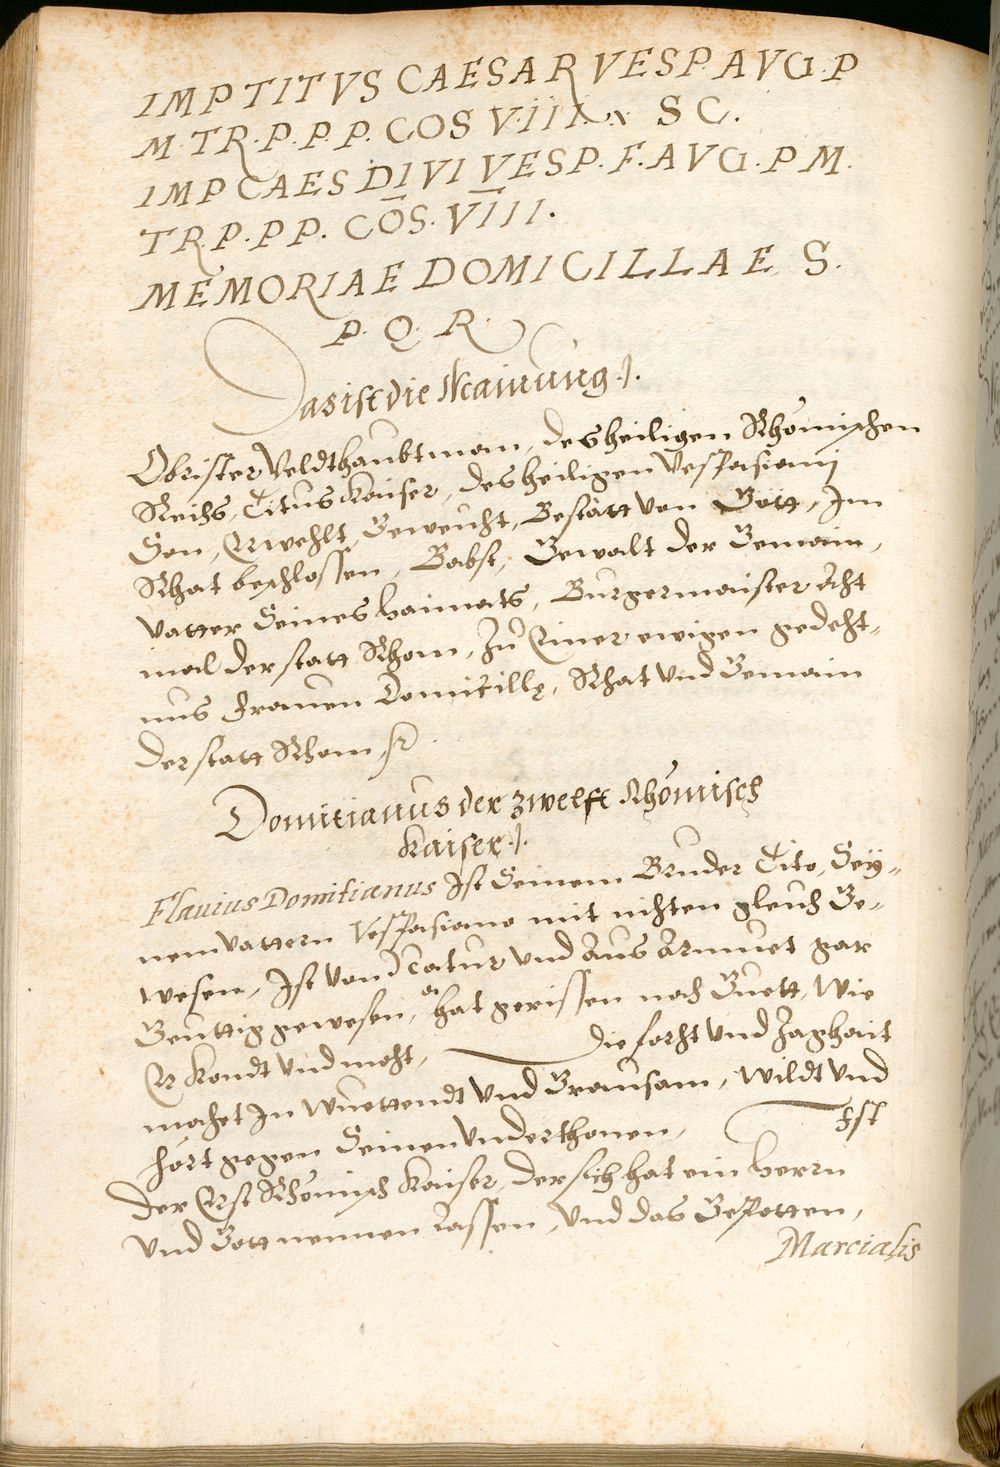 IMP TITVS CAESAR VESP. AVG. P
M. TR. P. P. P. COS VIII. SC.
IMP CAES DIVI VESP. F. AVG. P M.
TR. P. P P. COS. VIII.
MEMORIAE DOMICILLAE S.
P. Q. R.
Das ist die Mainung.
Obrister Veldthaubtman, des heiligen Rhömischen
Reichs, Titus Kaiser, des heiligen Vespasianj
Son, Erwehlt, Geweicht, Bestätt von Gott, Im
Rhat beschlossen, Babst, Gewalt der Gemain,
Vatter Seines haimats, Burgermaister Acht
mal der statt Rhom, Zu Einer ewigen gedecht-
nus frauen Domicillę, Rhat und Gemain
der statt Rhom
Domitianus der zwelft Rhömisch
Kaiser.
Flauius Domitianus Ist Seinem Bruder Tito, Sey-
nem Vattern Vespasiano mit nichten gleich Ge-
wesen, Ist von Natur und Aus Armuet gar
Geuttig gewesen, hat gerissen nach Guett, Wie
Er kondt und mocht, Die forcht und Zaghait
machet In Wuettendt und Grausam, Wildt und
hört gegen Seinen Underthonen, Ist
der Erst Rhömisch Kaiser, der sich hat ein Herrn
und Gott nennen lassen, Und das Gepotten,
Marcialis